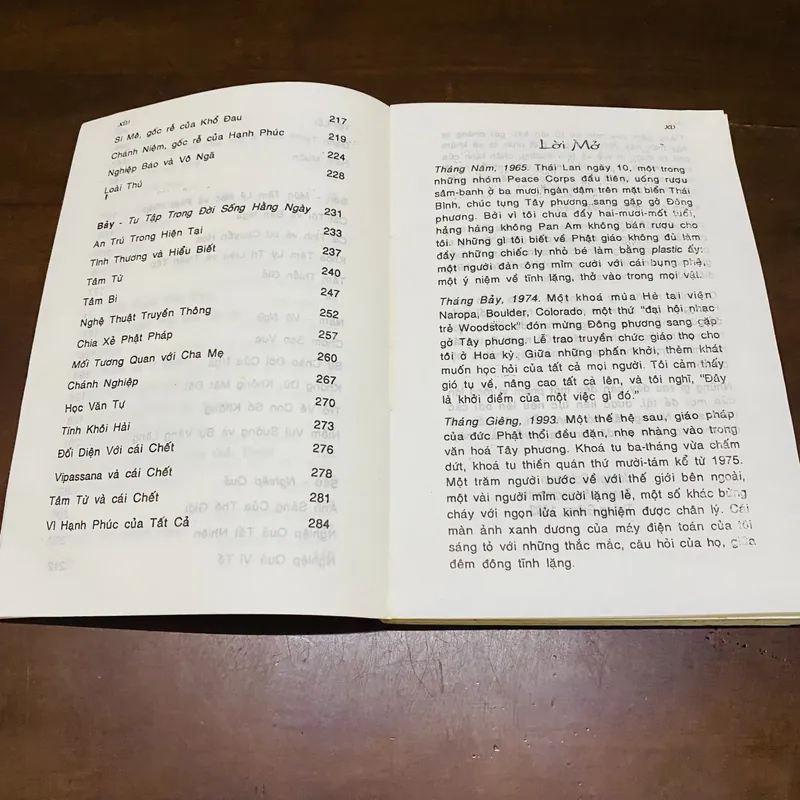 xiii
Si Mê, gốc rễ của Khổ Đau 217
Chánh Niệm, gốc rễ của Hạnh Phúc 219
Nghiệp Báo và Vô Ngã 224
Loài Thú 228
Bảy - Tu Tập Trong Đời Sống Hằng Ngày 231
An Trú Trong Hiện Tại 233
Tình Thương và Hiểu Biết 237
Tâm Từ 240
Tâm Bi 247
Nghệ Thuật Truyền Thông 252
Chia Xẻ Phật Pháp 257
Mối Tương Quan với Cha Mẹ 260
Chánh Nghiệp 267
Học Văn Tự 270
Tính Khôi Hài 273
Đối Diện Với cái Chết 276
Vipassana và cái Chết 278
Tâm Từ và cái Chết 281
Vì Hạnh Phúc của Tất Cả 284
xv
Lời Mở
Tháng Năm, 1965. Thái Lan ngày 10, một trong
những nhóm Peace Corps đầu tiên, uống rượu
sâm-banh ở ba mươi ngàn dặm trên mặt biển Thái
Bình, chúc tụng Tây phương sang gặp gỡ Đông
phương. Bởi vì tôi chưa đầy hai-mươi-mốt tuổi,
hãng hàng không Pan Am không bán rượu cho
tôi. Những gì tôi biết về Phật giáo không đủ làm
đầy những chiếc ly nhỏ bé làm bằng plastic ấy:
một người đàn ông mỉm cười với cái bụng phệ,
một ý niệm về tĩnh lặng, thở vào trong mọi vật.
Tháng Bảy, 1974. Một khoá mùa Hè tại viện
Naropa, Boulder, Colorado, một thứ "đại hội nhạc
trẻ Woodstock" đón mừng Đông phương sang gặp
gỡ Tây phương. Lễ trao truyền chức giáo thọ cho
tôi ở Hoa kỳ. Giữa những phấn khởi, thèm khát
muốn học hỏi của tất cả mọi người. Tôi cảm thấy
gió tụ về, nâng cao tất cả lên, và tôi nghĩ, "Đây
là khởi điểm của một việc gì đó."
Tháng Giêng, 1993. Một thế hệ sau, giáo pháp
của đức Phật thổi đều đặn, nhẹ nhàng vào trong
văn hoá Tây phương. Khoá tu ba-tháng vừa chấm
dứt, khoá tu thiền quán thứ mười-tám kể từ 1975.
Một trăm người bước về với thế giới bên ngoài,
một vài người mỉm cười lặng lẽ, một số khác bừng
cháy với ngọn lửa kinh nghiệm được chân lý. Cái
màn ảnh xanh dương của máy điện toán của tôi
sáng tỏ với những thắc mắc, câu hỏi của họ, giữa
đêm đông tĩnh lặng.